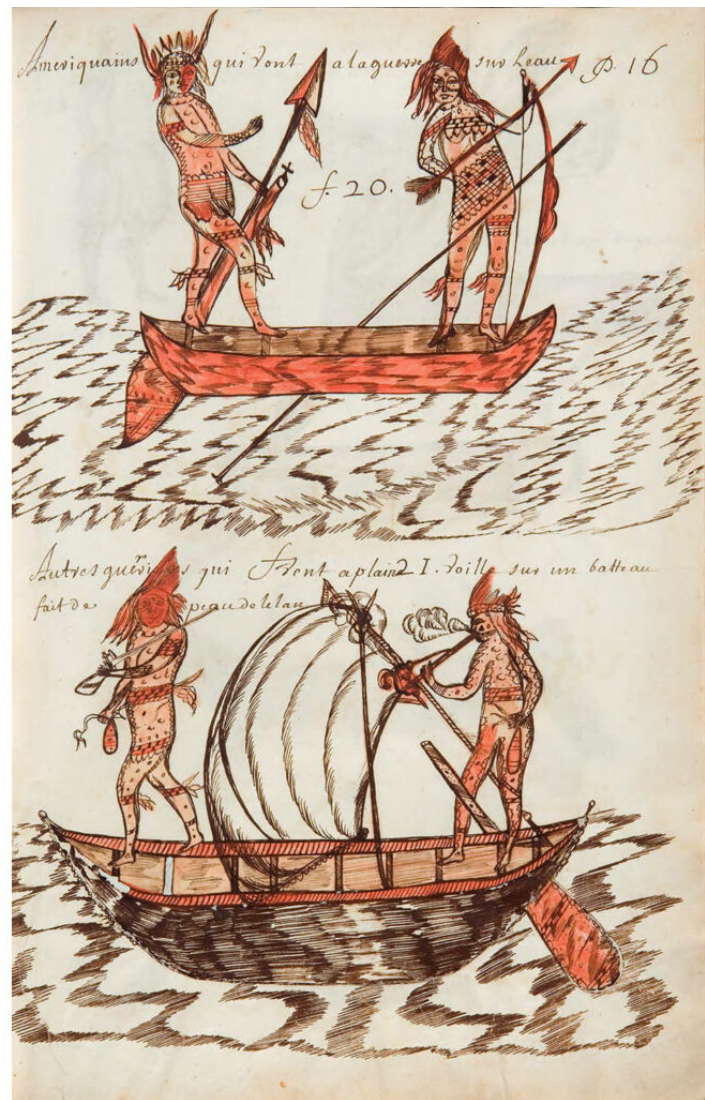 Ameriquains qui vont alaguerre sur leau p. 16
f. 20.
Autres qui aplain 21. voille sur un batteau
fait de peau de lelan